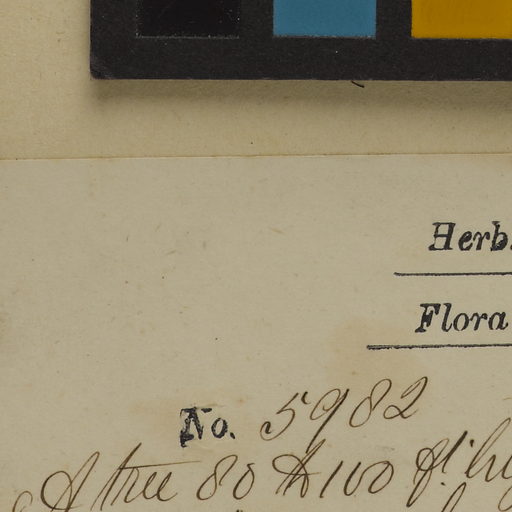 Herb.
Flora
No. 5982
A tree 80 to 100 ft. hig